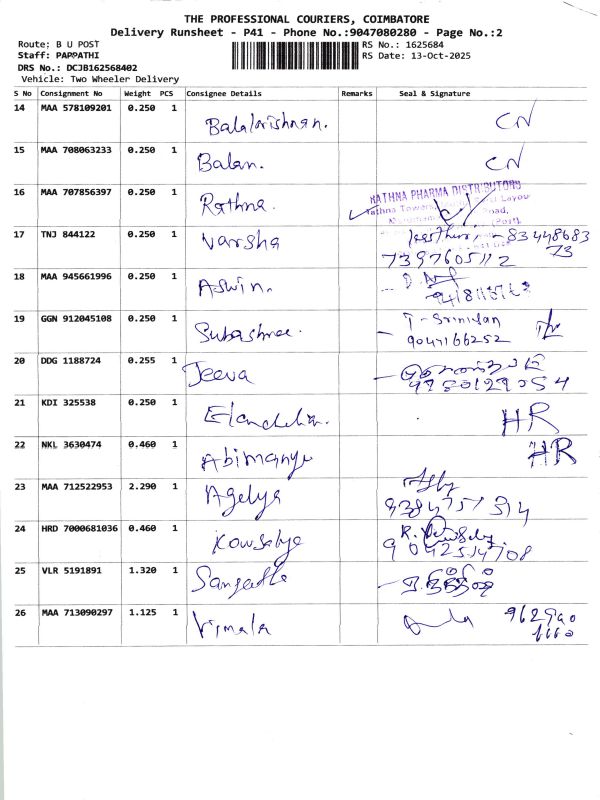 THE PROFESSIONAL COURIERS, COIMBATORE
Delivery Runsheet - P41 - Phone No.:9047080280 - Page No.:2
Route: B U POST RS No.: 1625684
Staff: PAPPATHI RS Date: 13-Oct-2025
DRS No.: DCJB162568402
Vehicle: Two Wheeler Delivery
S No Consignment No Weight PCS Consignee Details Remarks Seal & Signature
14 MAA 578109201 0.250 1 Balakrishnan. CN
15 MAA 708063233 0.250 1 Balan. CN
16 MAA 707856397 0.250 1 Rathna. RATHNA PHARMA DISTRIBUTORS
17 TNJ 844122 0.250 1 Varsha 83448683
7397605112 73
18 MAA 945661996 0.250 1 Aswin.
19 GGN 912045108 0.250 1 Subashree. T-Srinivasan
9047166252
20 DDG 1188724 0.255 1 Jeeva
21 KDI 325538 0.250 1 HR
22 NKL 3630474 0.460 1 Abimanyu HR
23 MAA 712522953 2.290 1
24 HRD 7000681036 0.460 1 Kowsalya
9042514708
25 VLR 5191891 1.320 1 Sangeetha
26 MAA 713090297 1.125 1 Vimala